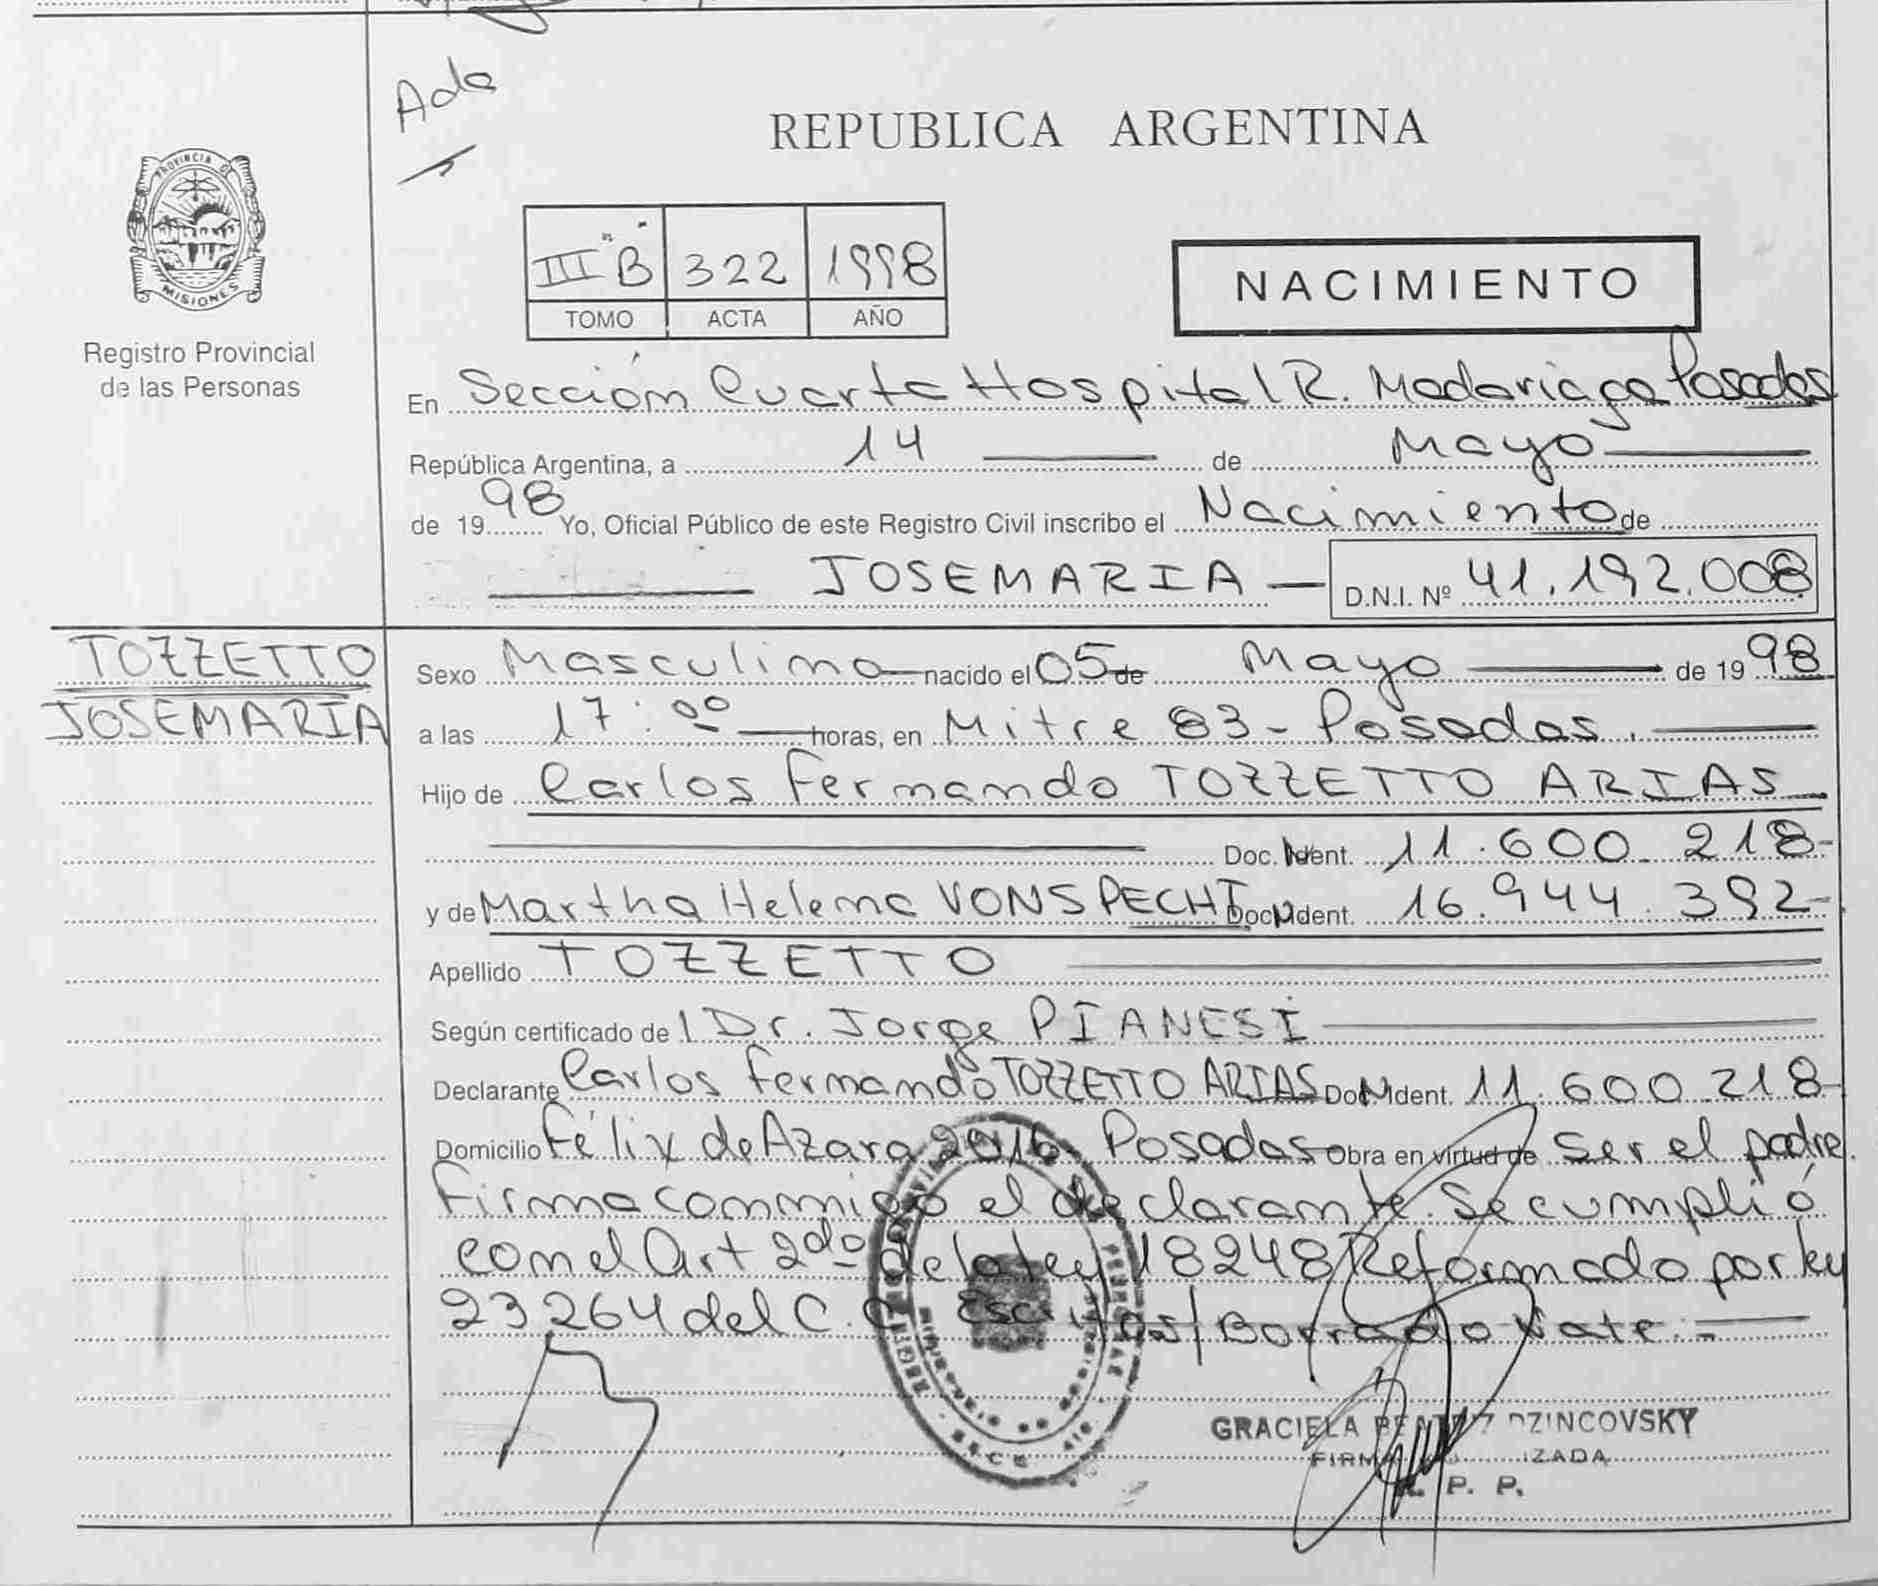 Ada
REPUBLICA ARGENTINA
PROVINCIA DE
MISIONES
Registro Provincial
de las Personas
III "B" 322 1998
TOMO ACTA AÑO
NACIMIENTO
En Sección Cuarta Hospital R. Madariaga Posadas
República Argentina, a 14 de Mayo
de 1998 Yo, Oficial Público de este Registro Civil inscribo el Nacimiento de
JOSEMARIA D.N.I. Nº 41.192.008
TOZZETTO
JOSEMARIA
Sexo Masculino nacido el 05 de Mayo de 1998
a las 17:00 horas, en Mitre 83 - Posadas.
Hijo de Carlos Fernando TOZZETTO ARIAS
Doc. Ident. 11.600.218-
y de Martha Helena VONSPECHT Doc. Ident. 16.944.392-
Apellido TOZZETTO
Según certificado del Dr. Jorge PIANESI
Declarante Carlos Fernando TOZZETTO ARIAS Doc. Ident. 11.600.218-
Domicilio Félix de Azara 2016 Posadas Obra en virtud de Ser el padre.
Firma conmigo el declarante. Se cumplió
con el Art 2do de la ley 18248 Reformado por ley
23264 del C.C. Escritos/Borrado Vate.-
GRACIELA BEATRIZ DZINCOVSKY
P. P.